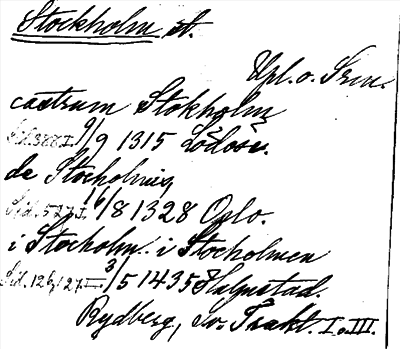 Stockholm, st.
Upl. o. Srm.
castrum Stokholm
Sid. 388 I. 9/9 1315 Lödöse.
de Stocholmis
Sid. 527 I. 16/8 1328 Oslo.
i Stocholm. i Stocholmen
Sid. 126, 127 III. 3/5 1435 Halmstad.
Rydberg, Sv. Trakt. I o. III.